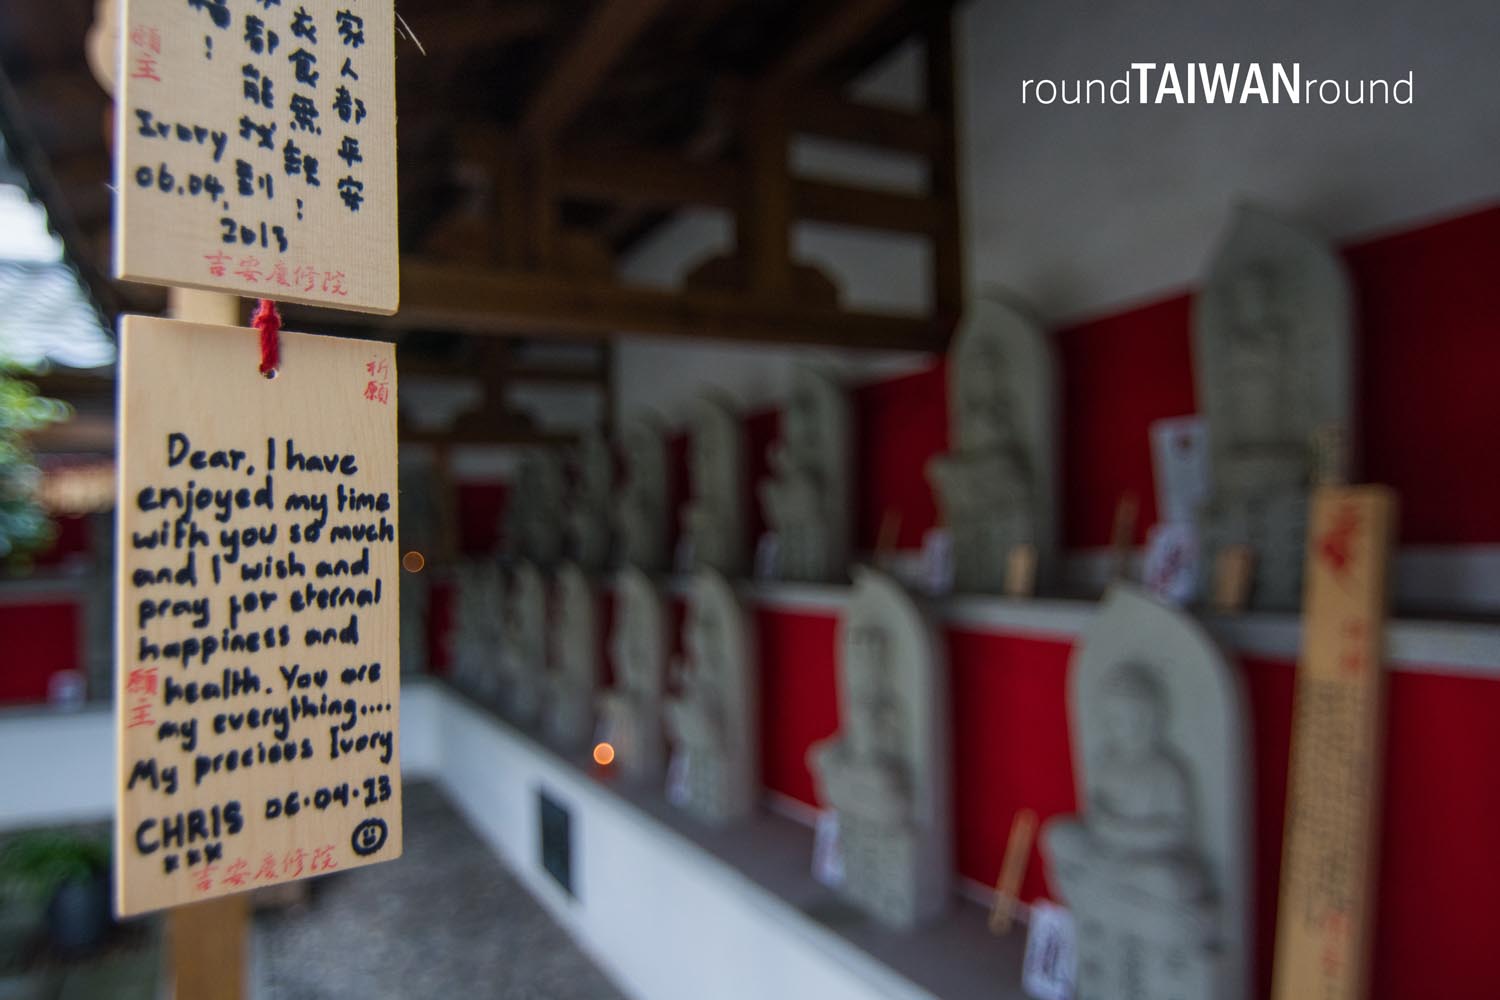 家人都平安
衣食無缺！
都能找到
福！
願主
Ivory
06.04.
2013
吉安慶修院
祈願
Dear, I have
enjoyed my time
with you so much
and I wish and
pray for eternal
happiness and
health. You are
my everything....
My precious Ivory
願主
CHRIS 06.04.13
xxx
吉安慶修院
roundTAIWANround